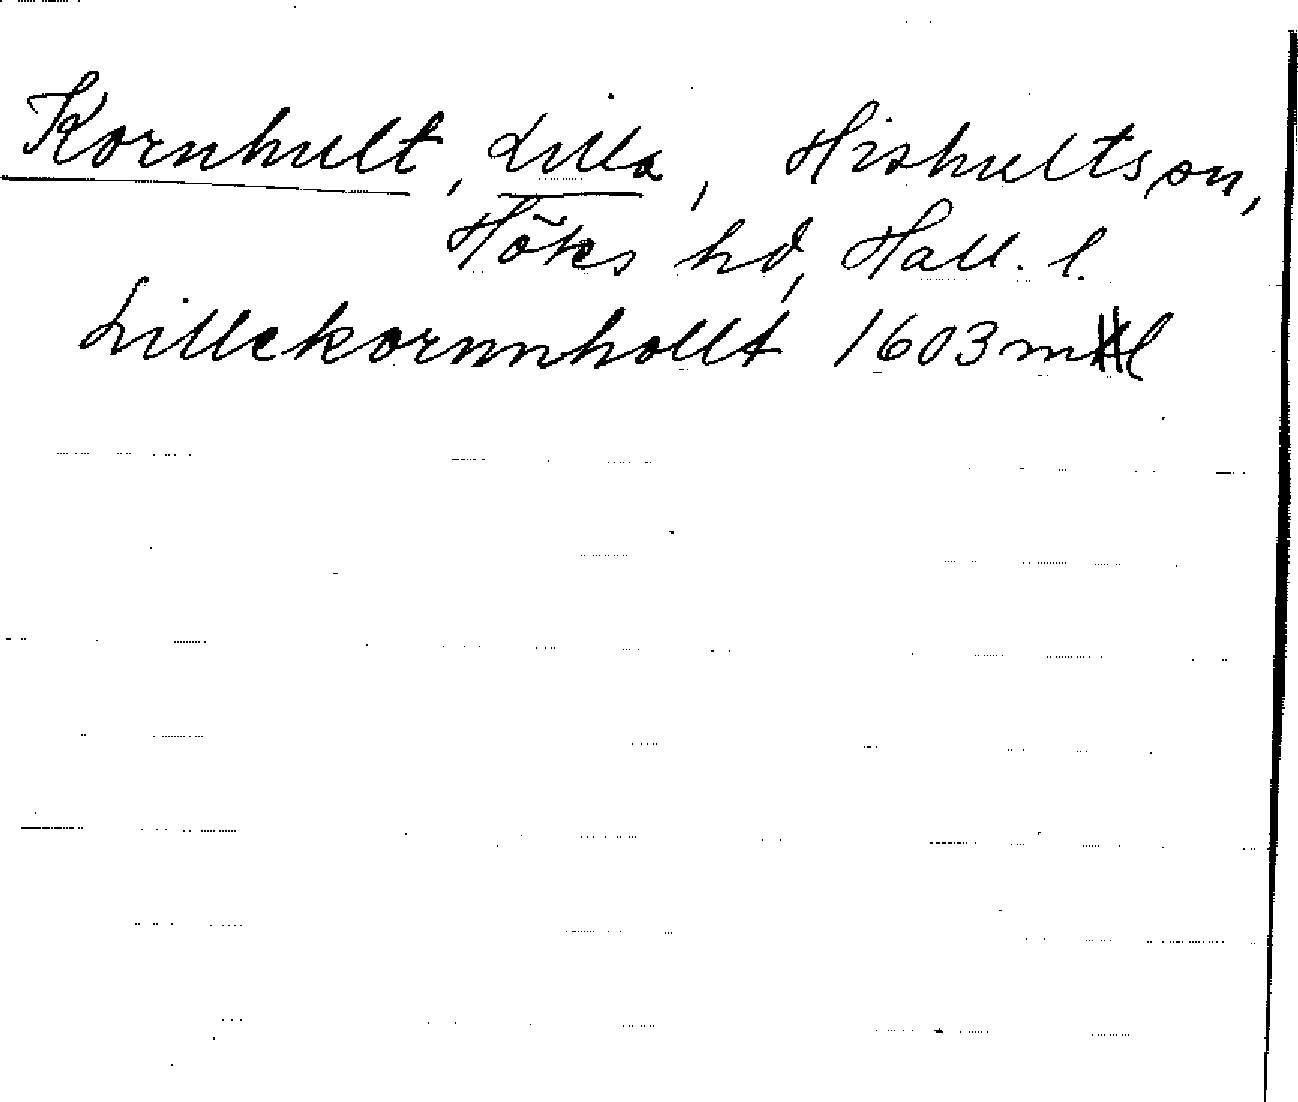 Kornhult, Lilla, Hishults sn,
Höks hd, Hall. l.
Lillekornnhollt 1603 ml